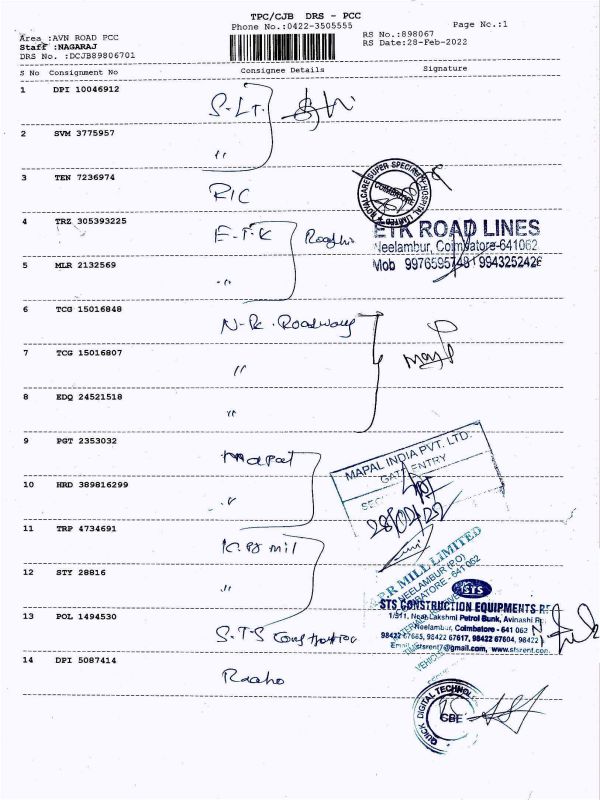 TPC/CJB DRS - PCC
Phone No.:0422-3505555
Page No.:1
Area :AVN ROAD PCC
Staff :NAGARAJ
DRS No. :DCJB89806701
RS No.:898067
RS Date:28-Feb-2022
S No Consignment No Consignee Details Signature
1 DPI 10046912 S.LT.
2 SVM 3775957 "
3 TEN 7236974 RIC
ROYALCARE SUPER SPECIALITY HOSPITAL LIMITED
COIMBATORE
4 TRZ 305393225 E.T.K
ETK ROAD LINES
Neelambur, Coimbatore-641062
Mob 9976595748 9943252426
5 MLR 2132569 "
6 TCG 15016848 N.R. Roadways
7 TCG 15016807 "
8 EDQ 24521518 "
9 PGT 2353032 Mapal
MAPAL INDIA PVT. LTD.
GATE ENTRY
10 HRD 389816299 "
11 TRP 4734691 K.P.R mil
P.R MILL LIMITED
NEELAMBUR (P.O)
COIMBATORE - 641 062
12 STY 28816 "
STS
STS CONSTRUCTION EQUIPMENTS
1/511, Near Lakshmi Petrol Bunk, Avinashi
Neelambur, Coimbatore - 641 062
98422 67665, 98422 67617, 98422 67604, 98422
Email: stsrent7@gmail.com, www.stsrent.com
13 POL 1494530 S.T.S Construction
14 DPI 5087414
QUICK DIGITAL TECHNOLO
CBE